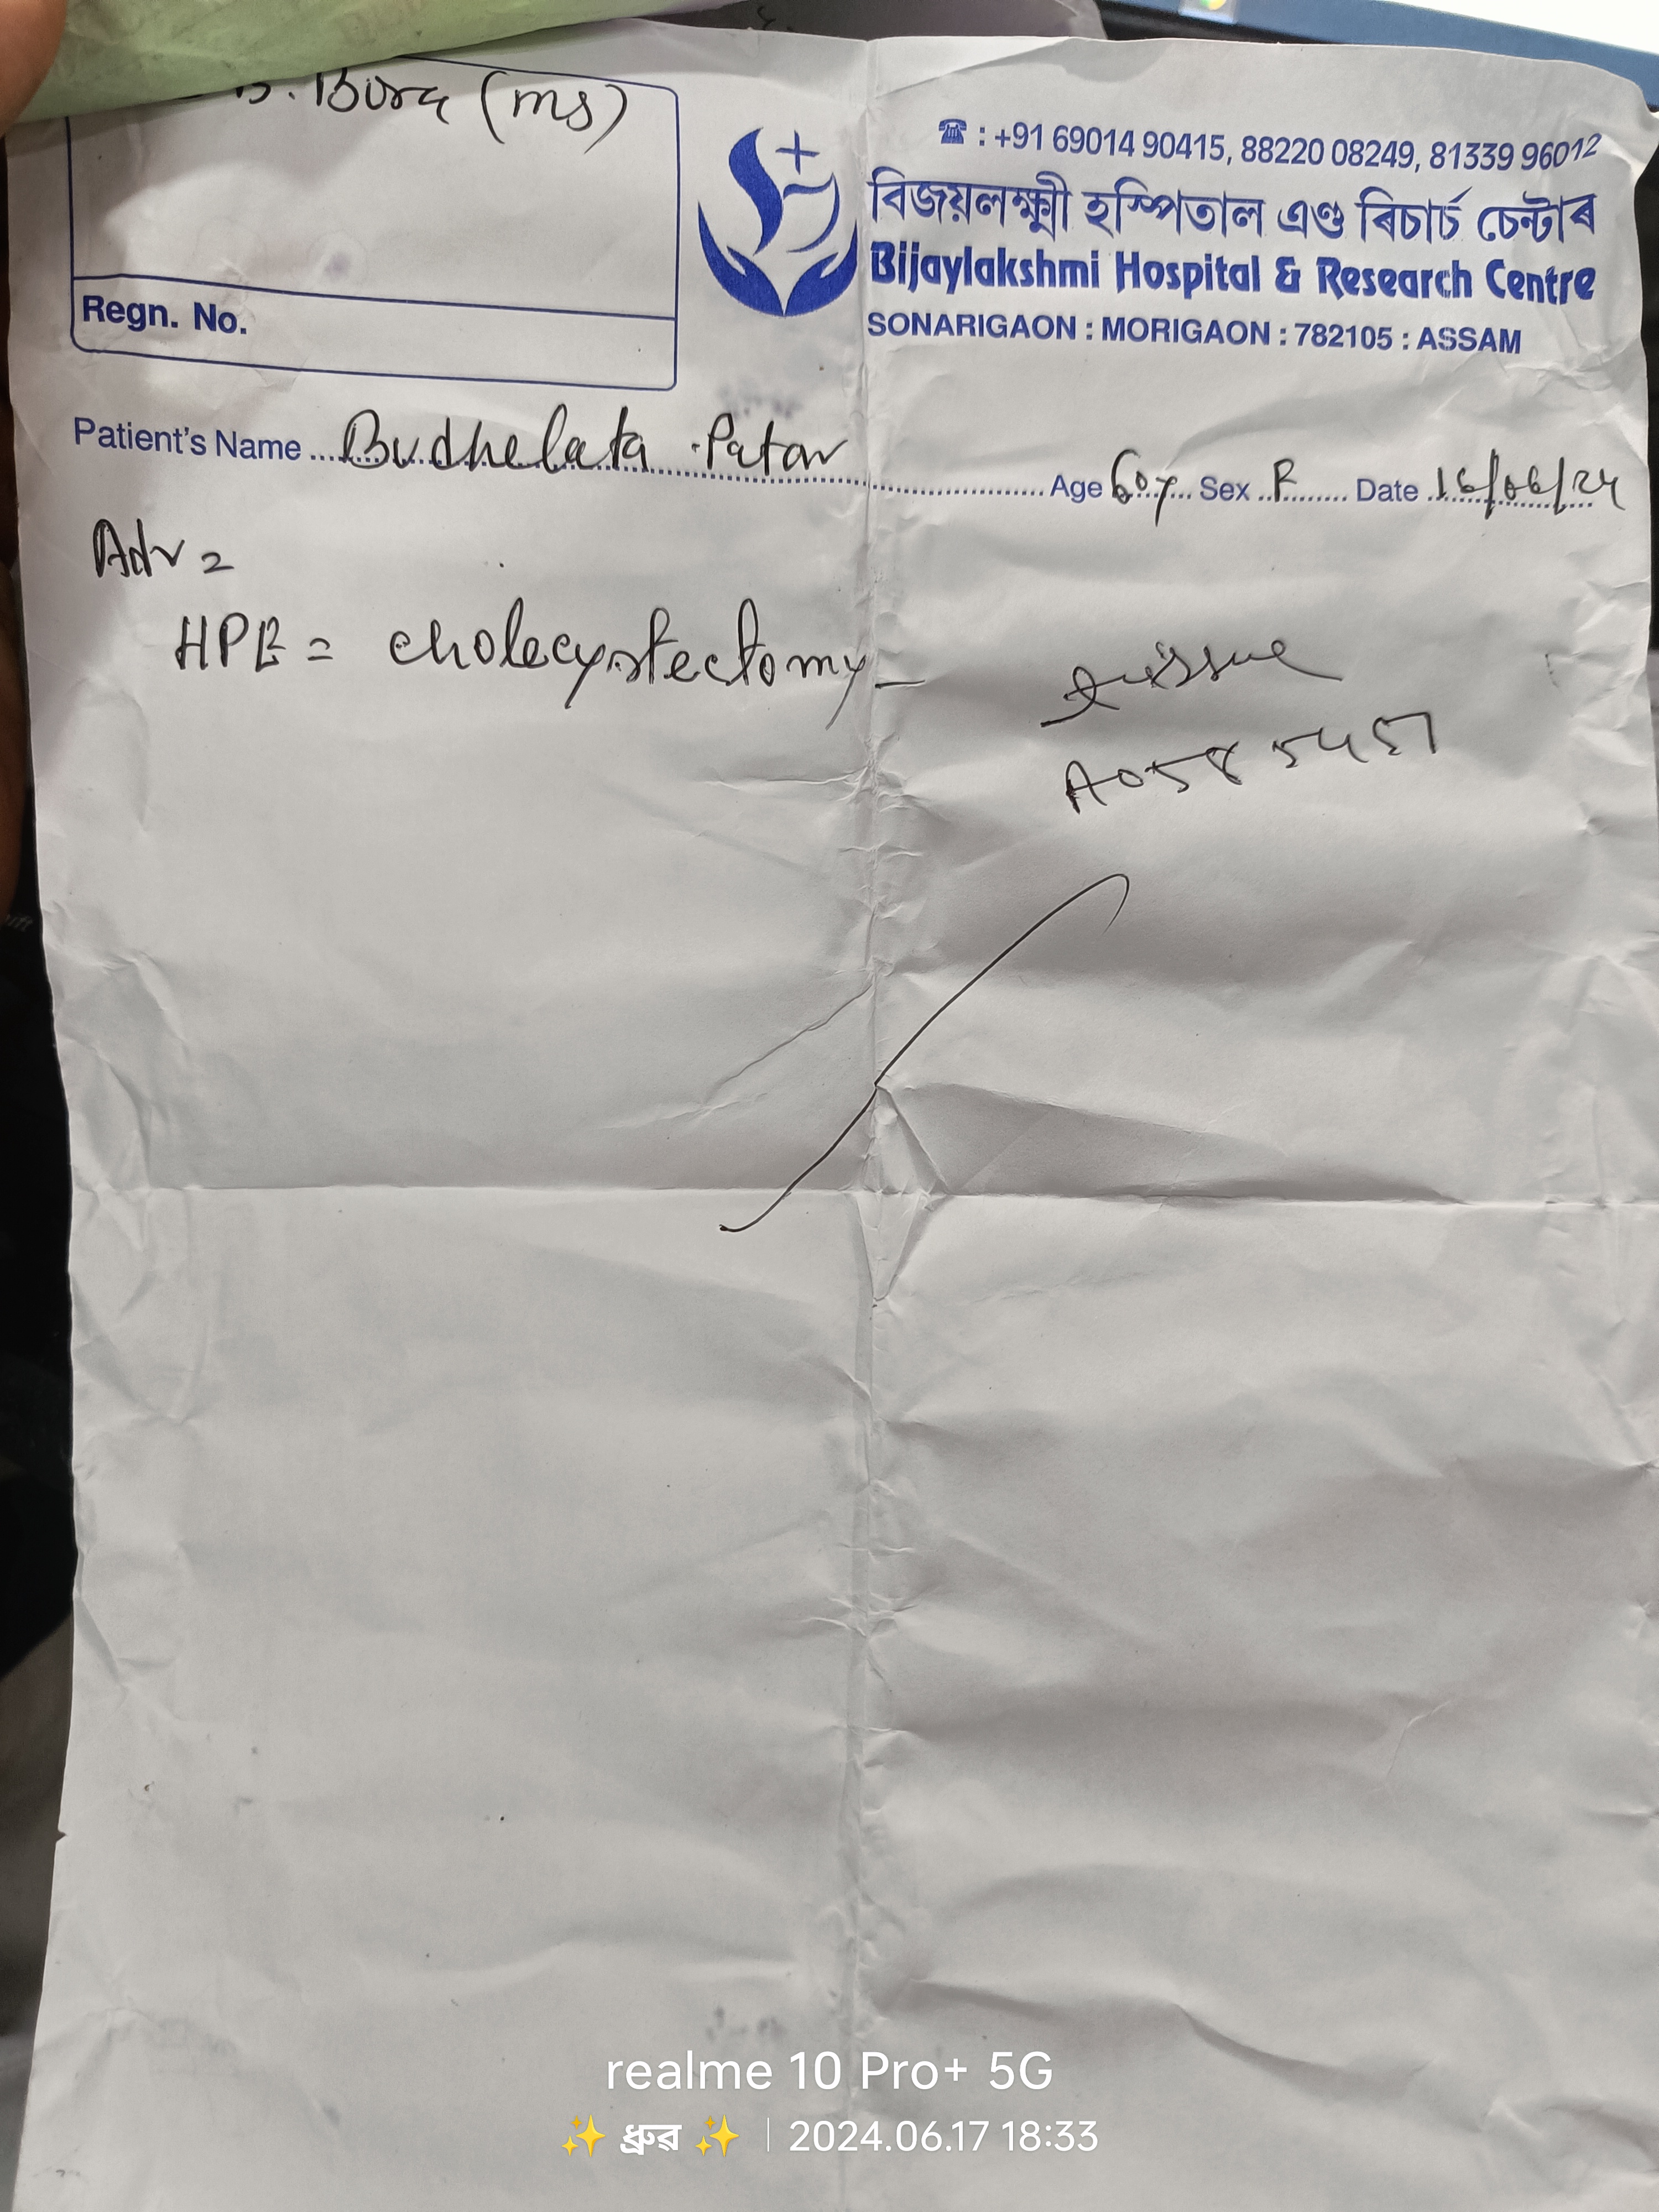 B. Bora (ms)
Regn. No.
☎ : +91 69014 90415, 88220 08249, 81339 96012
বিজয়লক্ষ্মী হস্পিতাল এণ্ড ৰিচাৰ্চ চেন্টাৰ
Bijaylakshmi Hospital & Research Centre
SONARIGAON : MORIGAON : 782105 : ASSAM
Patient's Name Budhelata Patar Age 60y Sex F Date 16/06/24
Adv =
HPE = cholecystectomy - tissue
realme 10 Pro+ 5G
✨ ধ্ৰুৱ ✨ | 2024.06.17 18:33